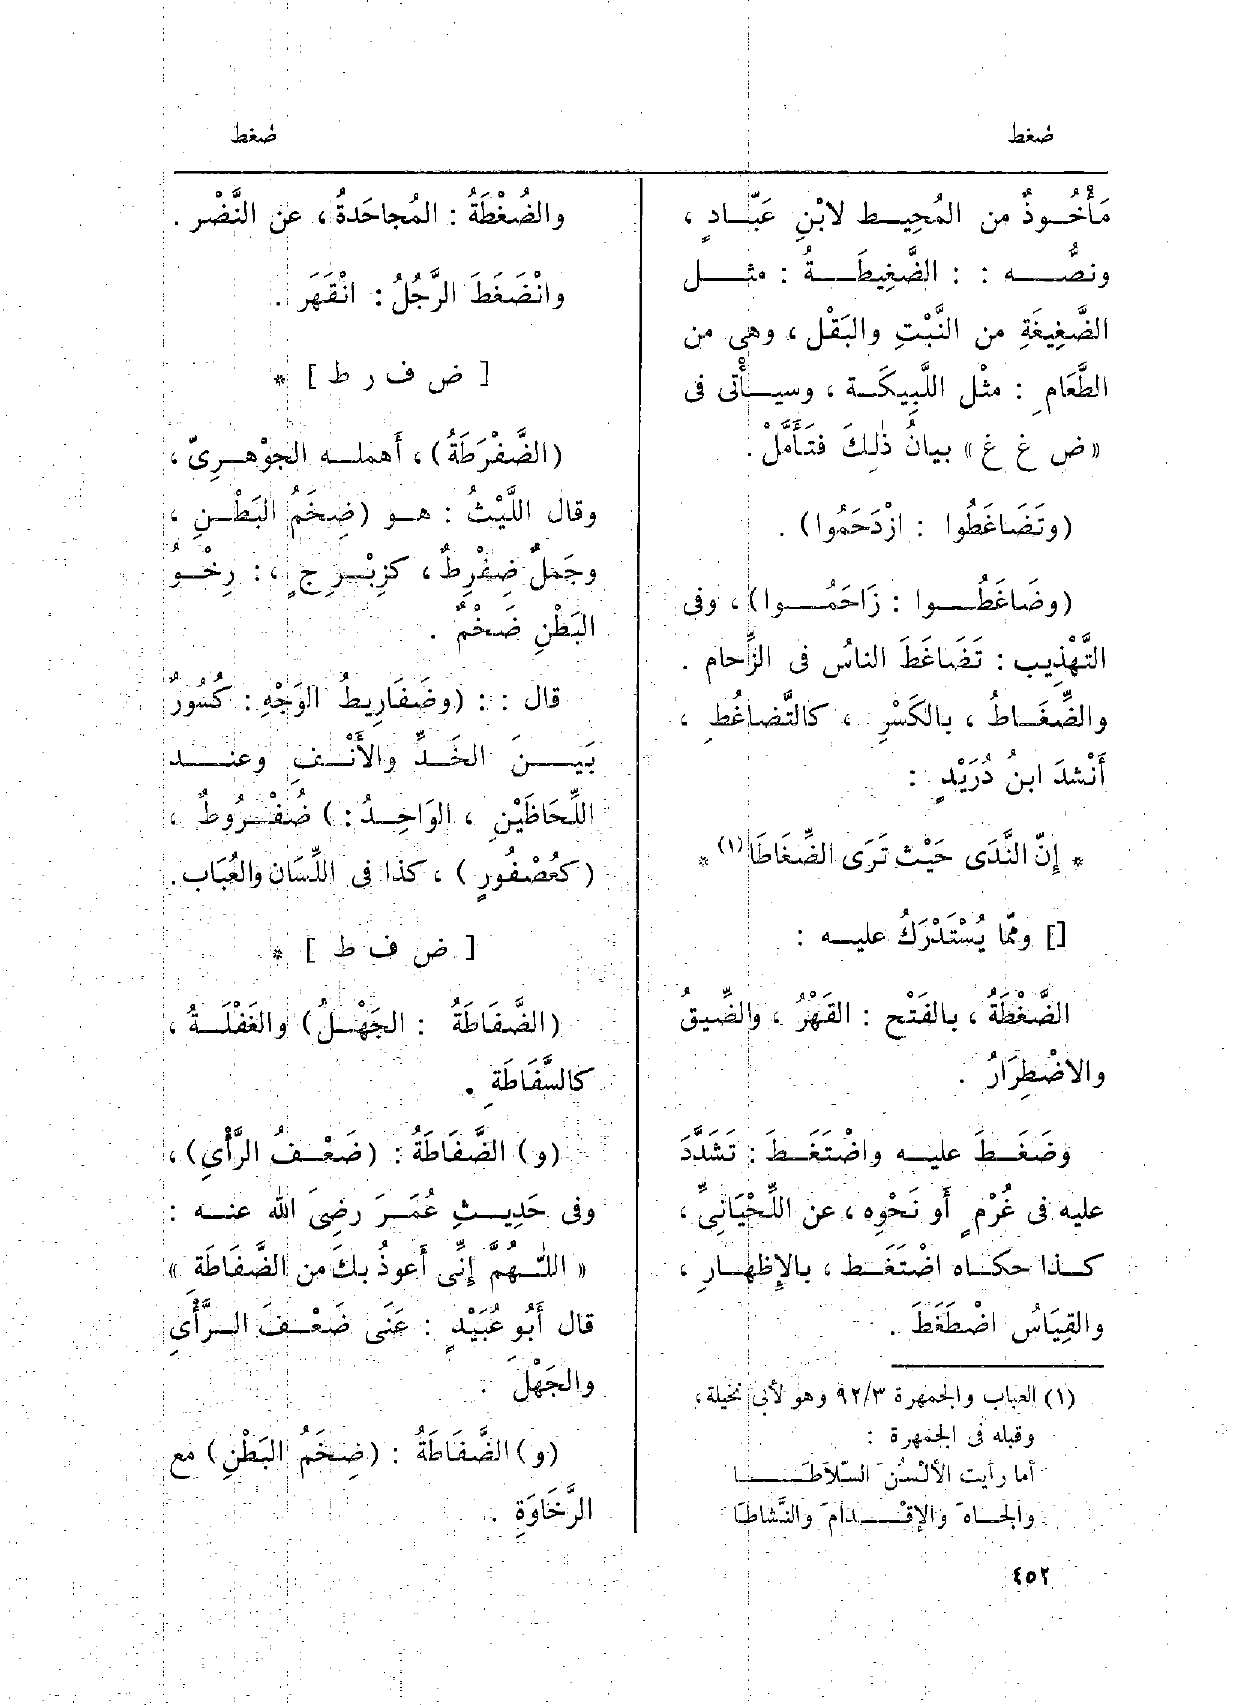 ضغط
ضغط
مَأْخُوذٌ من المُحِيط لابْنِ عَبّادٍ ،
ونصُّه : : الضَّغِيطَةُ : مثل
الضَّغِيغَةِ من النَّبْتِ والبَقْل ، وهى من
الطَّعَامِ : مثْل اللَّبِيكَة ، وسيأْتى فى
« ض غ غ » بيانُ ذٰلِكَ فتَأَمَّلْ .
(وتَضَاغَطُوا : ازْدَحَمُوا) .
(وضَاغَطُوا : زَاحَمُوا) ، وفى
التَّهْذِيب : تَضَاغَطَ الناسُ فى الزِّحام .
والضِّغَاطُ ، بالكَسْرِ ، كالتَّضاغُطِ ،
أَنْشدَ ابنُ دُرَيْدٍ :
* إِنّ النَّدَى حَيْث تَرَى الضِّغاطَا (١) *
[] وممّا يُسْتَدْرَكُ عليه :
الضَّغْطَةُ ، بالفَتْح : القَهْرُ ، والضِّيقُ
والاضْطِرَارُ .
وضَغَطَ عليه واضْتَغَطَ : تَشَدَّدَ
عليه فى غُرْمٍ أَو نَحْوِه ، عن اللِّحْيَانِىِّ ،
كذا حكاه اضْتَغَط ، بالإِظهارِ ،
والقِيَاسُ اضْطَغَطَ .
(١) العباب والجمهرة ٩٢/٣ وهو لأبى نخيلة ،
وقبله فى الجمهرة :
أما رأيت الألْسُنَ السّلاطَا
والجاهَ والإقْدامَ والنَّشاطَا
والضُغْطَةُ : المُجاحَدةُ ، عن النَّضْر .
وانْضَغَطَ الرَّجُلُ : انْقَهَرَ .
[ ض ف ر ط ] *
(الضَّفْرَطَةُ) ، أَهمله الجوْهرِىّ ،
وقال اللَّيْثُ : هو (ضِخَمُ البَطْنِ ،
وجَملٌ ضِفْرِطٌ ، كزِبْرِجٍ ، : رِخْوُ
البَطْنِ ضَخْمٌ .
قال : : (وضَفَارِيطُ الوَجْهِ : كُسُورٌ
بَينَ الخَدِّ والأَنْفِ وعند
اللِّحَاظَيْنِ ، الوَاحِدُ :) ضُفْرُوطٌ ،
(كعُصْفُورٍ) ، كذا فى اللِّسَان والعُبَاب .
[ ض ف ط ] *
(الضَّفَاطَةُ : الجَهْلُ) والغَفْلَةُ ،
كالسَّفَاطَةِ .
(و) الضَّفَاطَةُ : (ضَعْفُ الرَّأْىِ) ،
وفى حَدِيثِ عُمَرَ رضِىَ الله عنه :
« اللّٰهُمَّ إِنِّى أَعوذُ بكَ من الضَّفَاطَةِ »
قال أَبُو عُبَيْدٍ : عَنَى ضَعْفَ الرَّأْىِ
والجَهْلَ .
(و) الضَّفَاطَةُ : (ضِخَمُ البَطْنِ) مع
الرَّخَاوَةِ .
٤٥٢